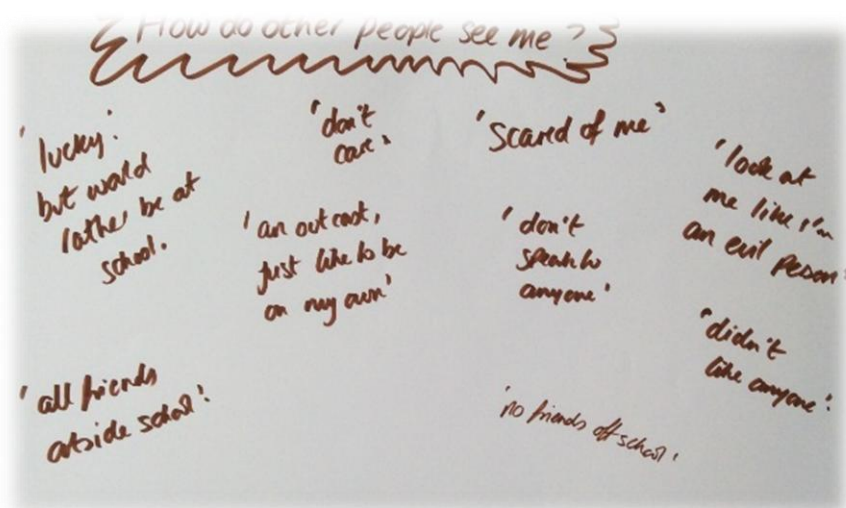 How do other people see me?
'lucky'.
but would
rather be at
school.
'don't
care'
'scared of me'
'look at
me like I'm
an evil person'
'an outcast,
just like to be
on my own'
'don't
speak to
anyone'
'didn't
like anyone'.
'all friends
outside school'.
'no friends off school'.